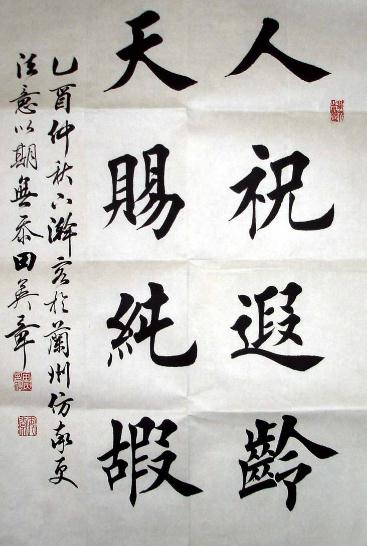 人祝遐齡
天賜純嘏
乙酉仲秋下澣客於蘭州仿率更
法意以期無忝田英章